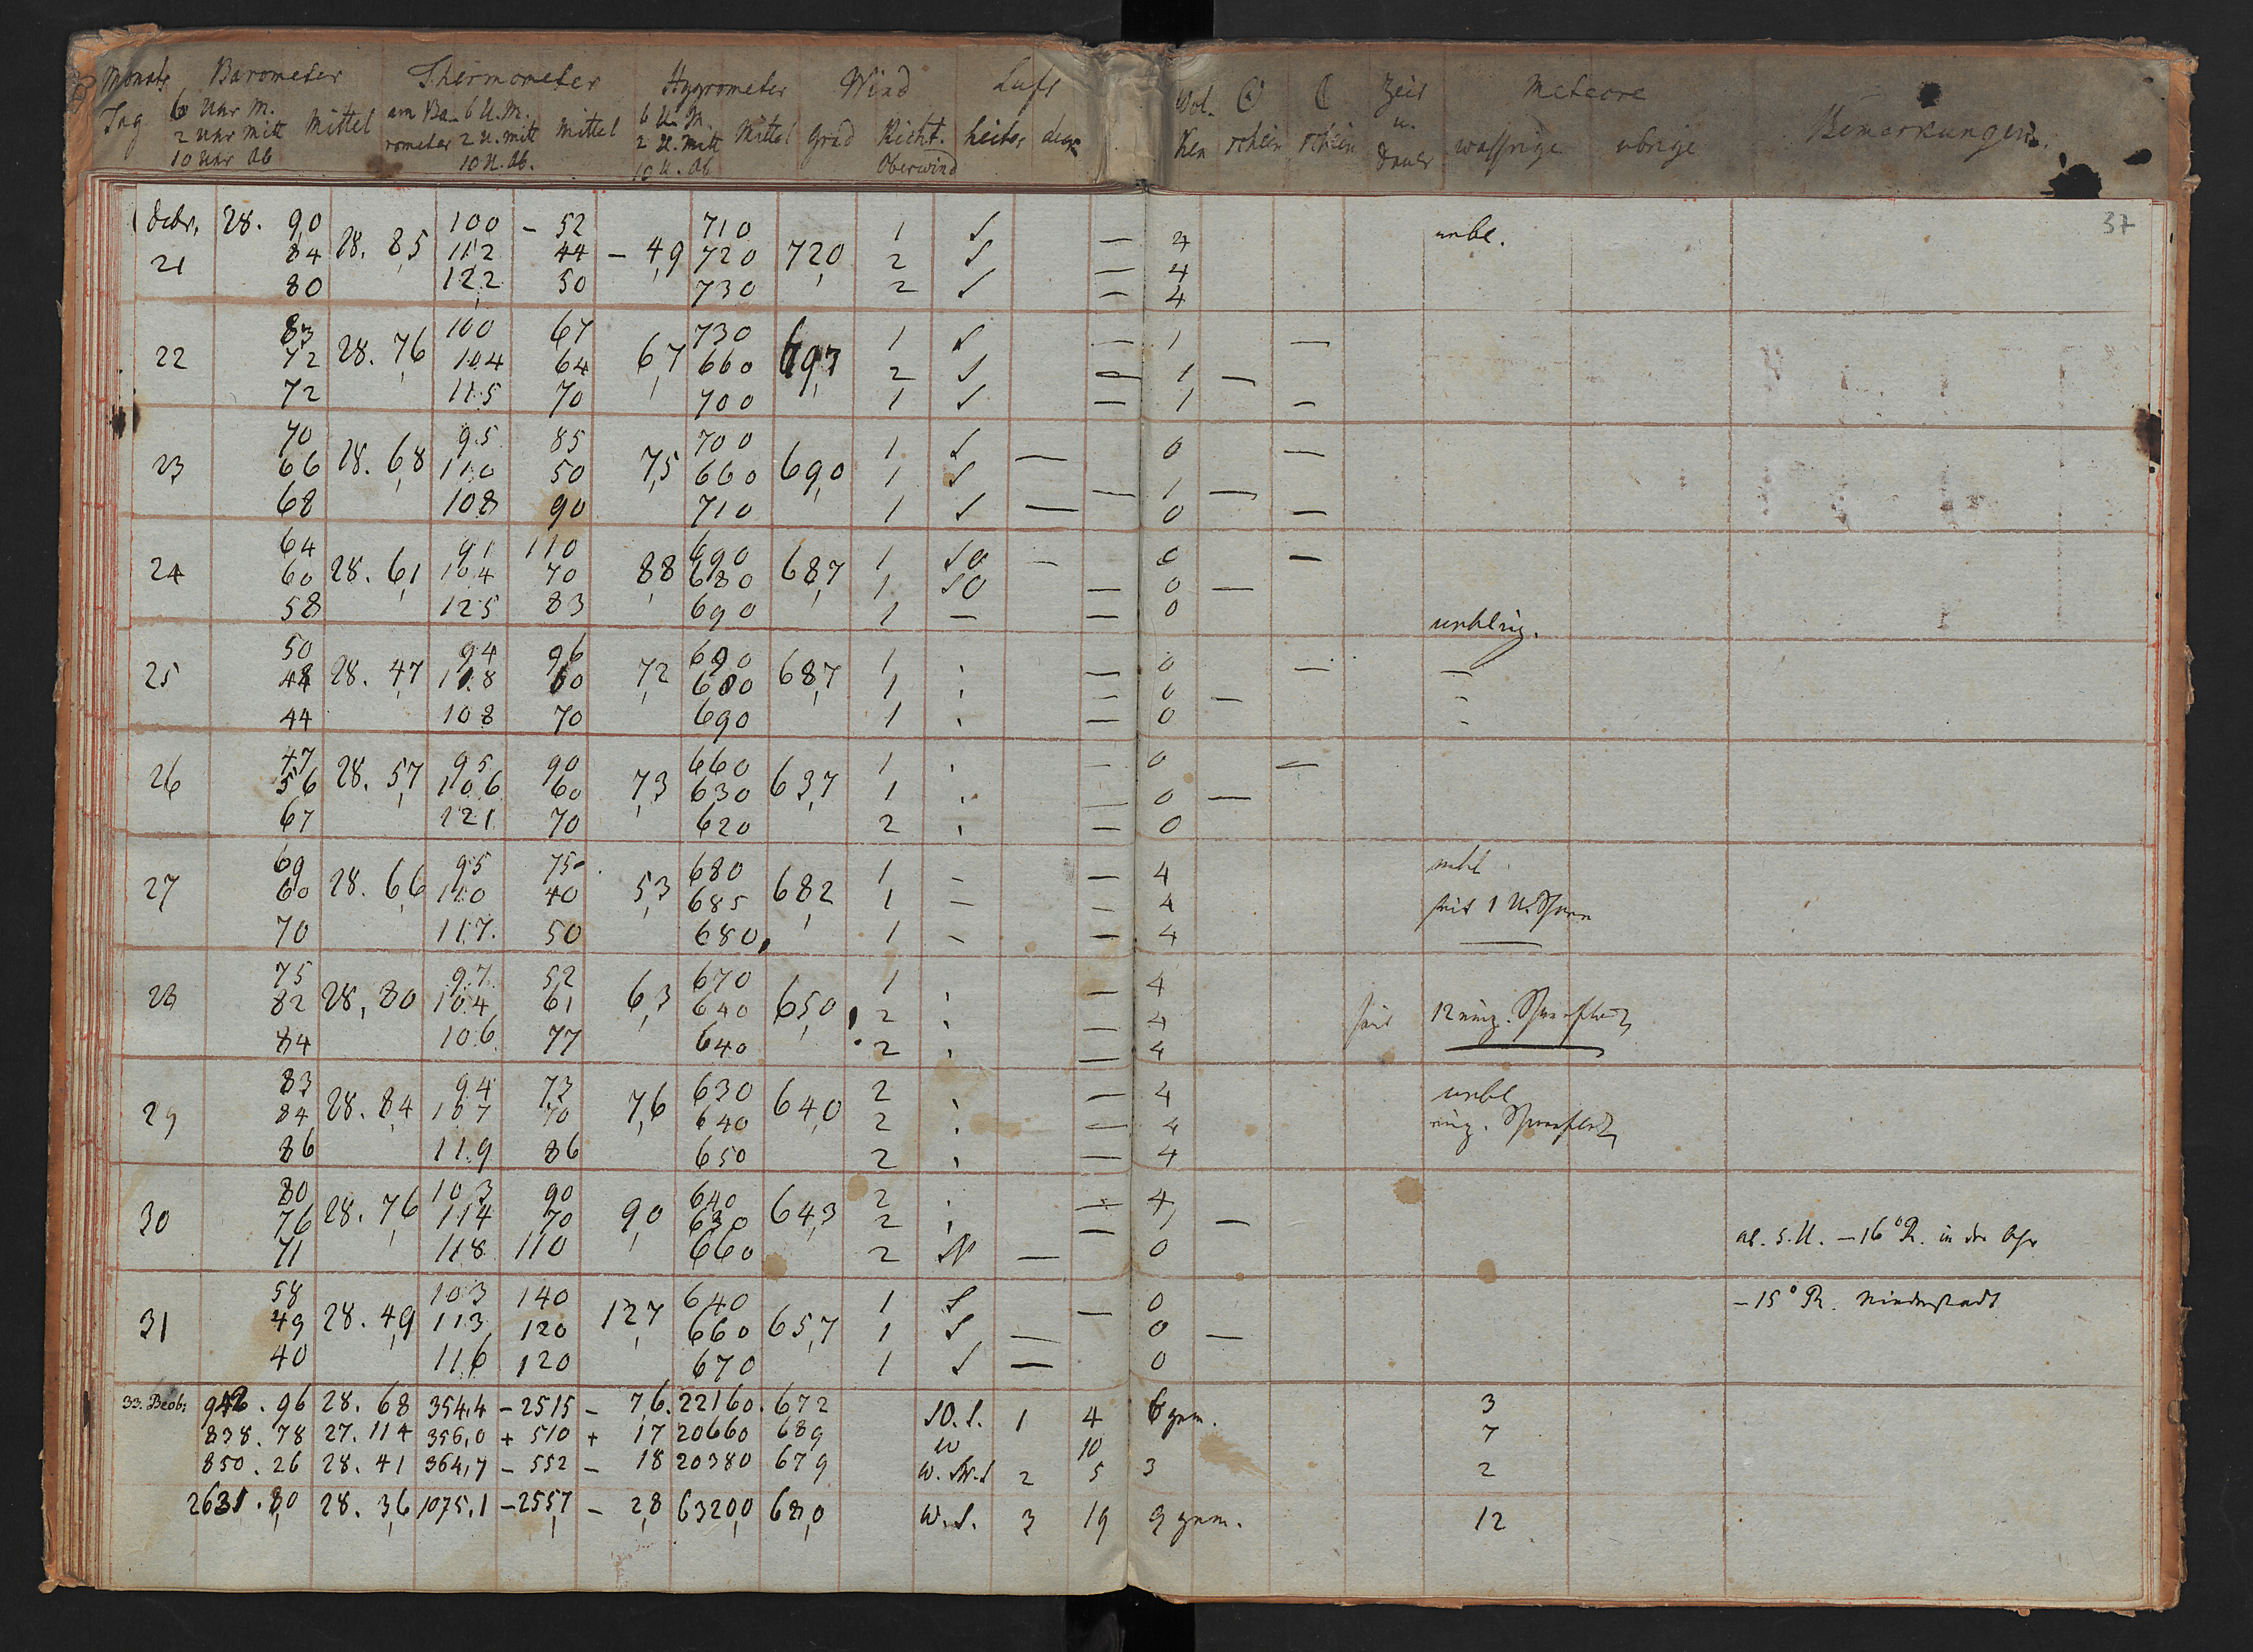 Monats Barometer Thermometer Hygrometer Wind Luft
Tag 6 Uhr M. Mittel am Ba- 6 U. M. Mittel 6 U. M. Mittel Grad Richt. heiter
2 Uhr Mitt rometer 2 U. Mitt 2 U. Mitt
10 Uhr Ab 10 U. Ab. 10 U. Ab Oberwind
Wol- ☉ ☾ Zeit Meteore Bemerkungen.
ken schein schein u. Dauer wassrige ubrige
37
Decbr. 28. 90 100 - 52 710 1 S 4 unbl.
21 84 28. 85 112 44 - 4,9 720 720 2 S — 4
80 122 50 730 2 S — 4
83 100 67 730 1 S — 1 —
22 72 28. 76 104 64 6,7 660 697 2 S — 1 —
72 115 70 700 1 S — 1 —
70 95 85 700 1 S — 0 —
23 66 28. 68 110 50 7,5 660 690 1 S — 1 —
68 108 90 710 1 S — 0 —
64 91 110 690 1 SO — 0 —
24 60 28. 61 104 70 8,8 680 687 1 SO — 0 —
58 125 83 690 1 — — 0
50 94 96 690 1 — 0 — —
25 44 28. 47 118 60 7,2 680 687 1 — 0 —
44 108 70 690 1 — 0
47 95 90 660 1 — 0 —
26 56 28. 57 106 60 7,3 630 637 1 — 0 —
67 121 70 620 2 — 0
69 95 75 680 1 — — 4
27 60 28. 66 110 40 5,3 685 682 1 — — 4
70 117 50 680 1 — — 4
75 97 52 670 1 — 4
28 82 28. 80 104 61 6,3 640 650 2 — 4
84 106 77 640 2 — 4
83 94 73 630 2 — 4 unbl
29 84 28. 84 107 70 7,6 640 640 2 — 4
86 119 86 650 2 — 4
80 103 90 640 2 — 4
30 76 28. 76 114 70 9,0 630 643 2 — 1 —
71 118 110 660 2 — 0
58 103 140 640 1 S — 0 - 15° R. Niederstadt
31 49 28. 49 113 120 12,7 660 657 1 S — 0 —
40 116 120 670 1 S — 0
33. Beob: 942. 96 28. 68 354,4 - 2515 - 76. 22160. 672 SO. S. 1 4 3
838. 78 27. 114 356,0 + 510 + 17 20660 689 W 10 7
850. 26 28. 41 364,7 - 552 - 18 20380 679 W. SW. S 2 5 3 2
2631. 80 28. 36 1075,1 - 2557 - 2,8 63200 680 W. S. 3 19 12